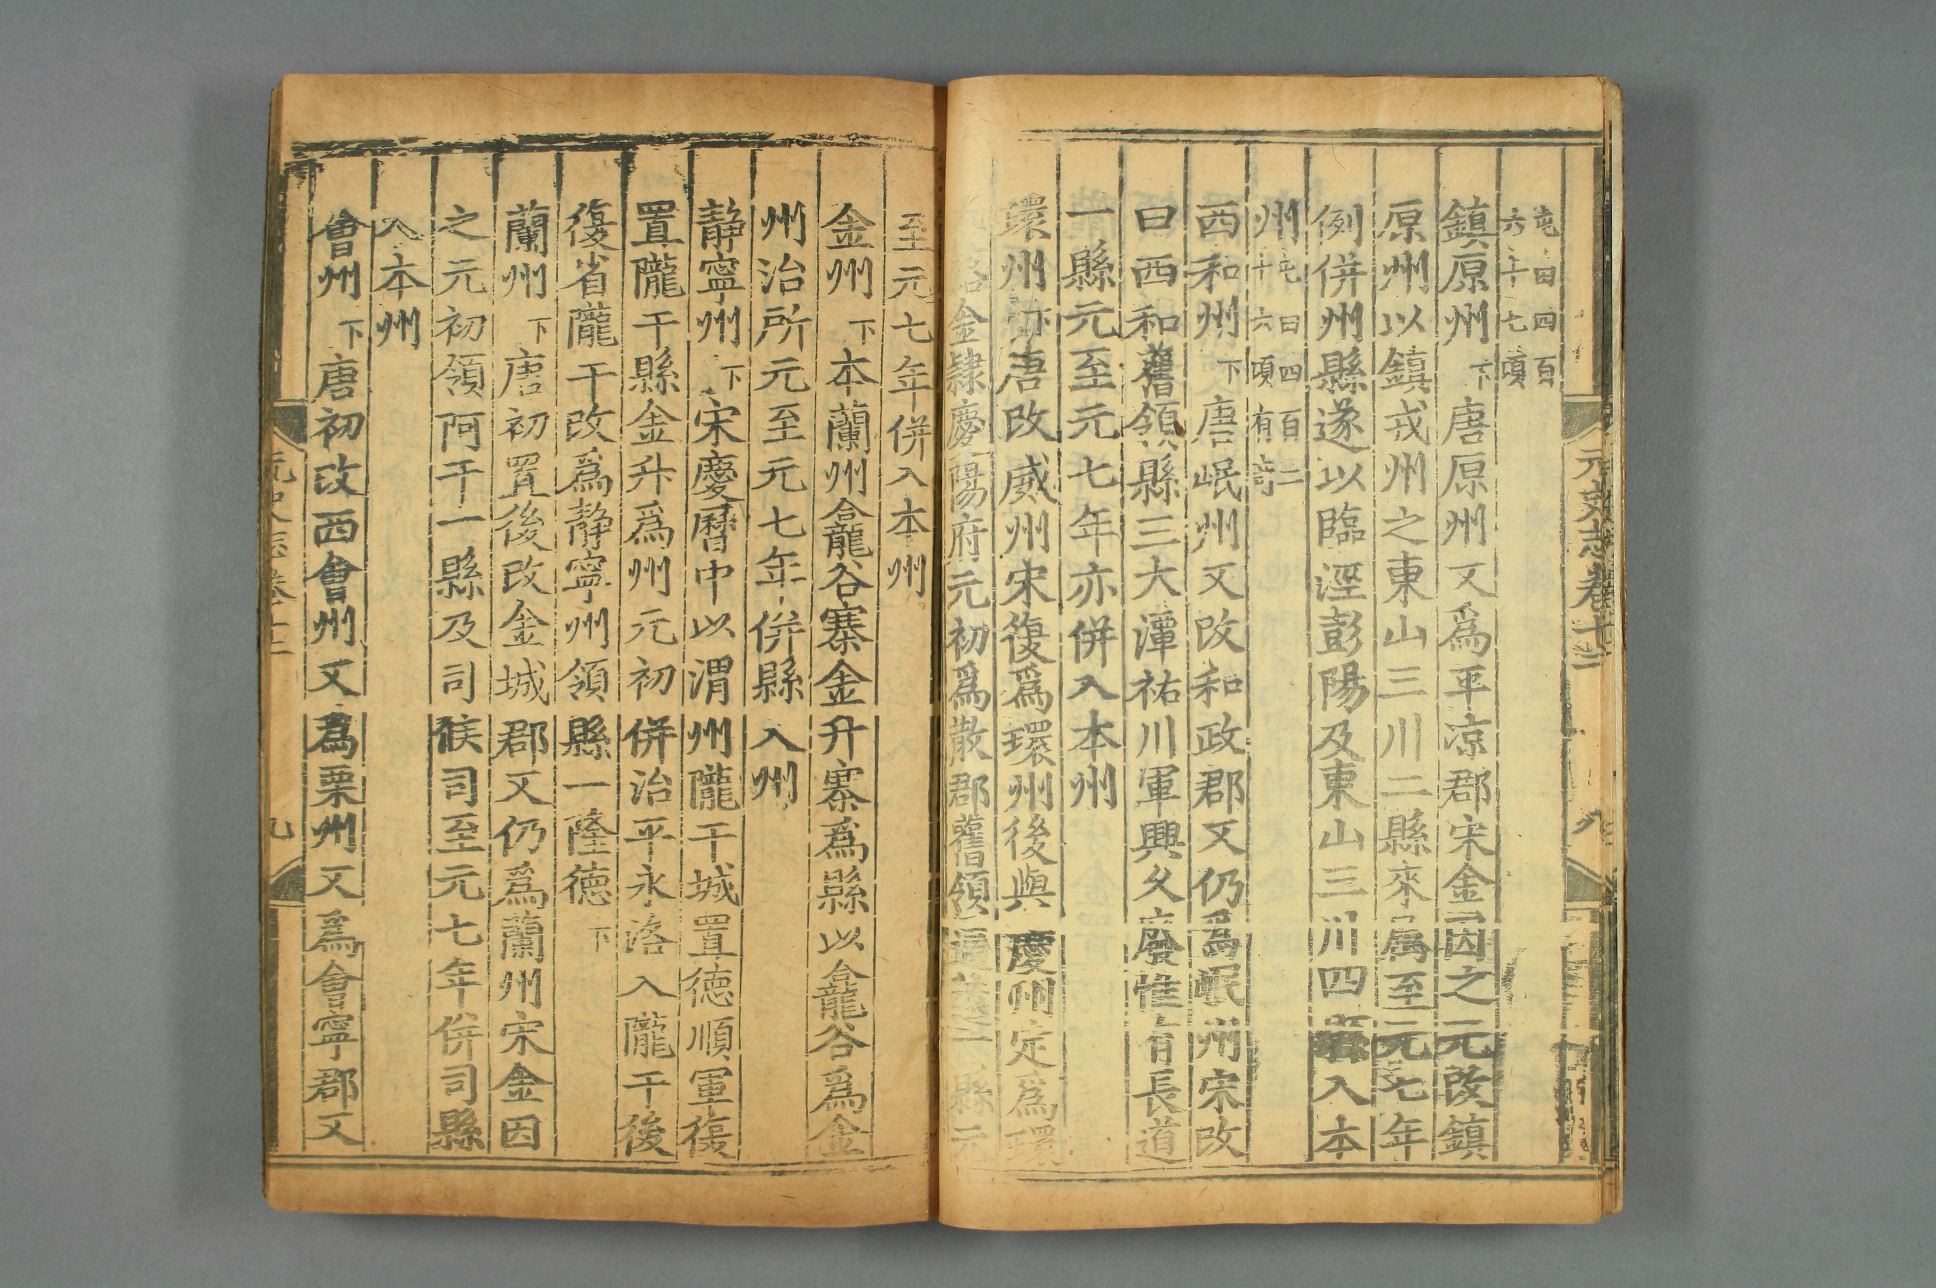 屯田四百
六十七頃
鎮原州下唐原州又爲平凉郡宋金因之元改鎮
原州以鎮戎州之東山三川二縣來屬至元七年
例併州縣遂以臨涇彭陽及東山三川四縣入本
州屯田四百二十六頃有奇
西和州下唐岷州又改和政郡又仍爲岷州宋改
曰西和舊領縣三大潭祐川軍興久廢惟有長道
一縣元至元七年亦併入本州
環州下唐改威州宋復爲環州後與慶州定爲環
路金隸慶陽府元初爲散郡舊領通遠一縣元
元史志卷十二
八
至元七年併入本州
金州下本蘭州龕谷寨金升寨爲縣以龕谷爲金
州治所元至元七年併縣入州
靜寧州下宋慶曆中以渭州隴干城置德順軍復
置隴干縣金升爲州元初併治平永洛入隴干後
復省隴干改爲靜寧州領縣一隆德下
蘭州下唐初置後改金城郡又仍爲蘭州宋金因
之元初領阿干一縣及司候司至元七年併司縣
入本州
會州下唐初改西會州又爲粟州又爲會寧郡又
元史志卷十二
九